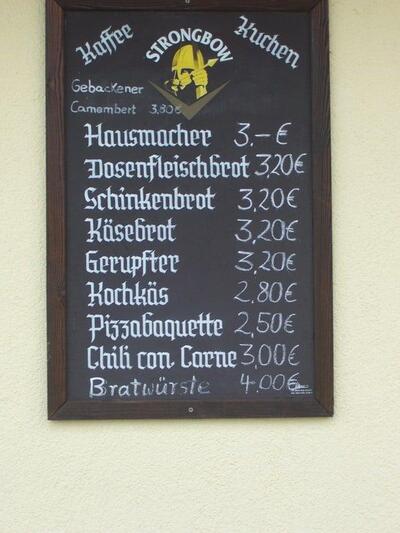 Kaffee STRONGBOW Kuchen
Gebackener
Camembert 3,80€
Hausmacher 3.-€
Dosenfleischbrot 3,20€
Schinkenbrot 3,20€
Käsebrot 3,20€
Gerupfter 3,20€
Kochkäs 2,80€
Pizzabaquette 2,50€
Chili con Carne 3,00€
Bratwürste 4.00€